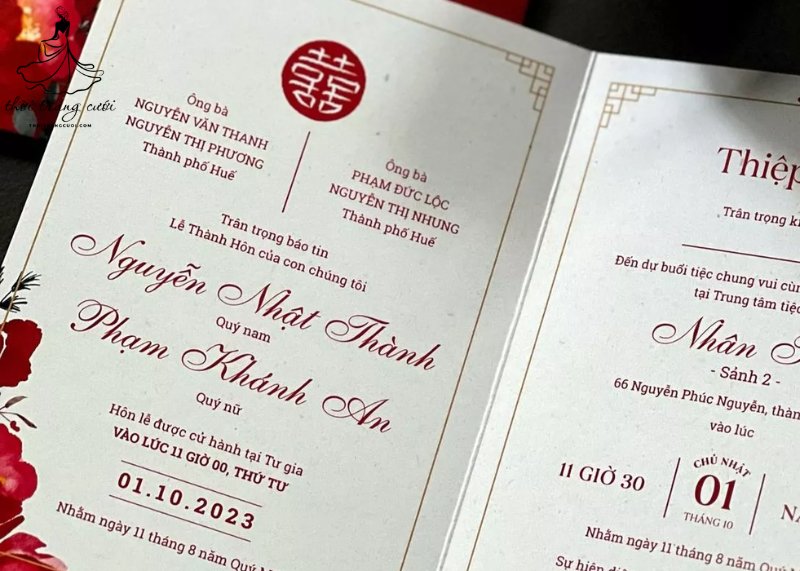 thời trang cưới
囍
Ông bà
NGUYỄN VĂN THANH
NGUYỄN THỊ PHƯƠNG
Thành phố Huế
Ông bà
PHẠM ĐỨC LỘC
NGUYỄN THỊ NHUNG
Thành phố Huế
Trân trọng báo tin
Lễ Thành Hôn của con chúng tôi
Nguyễn Nhật Thành
Quý nam
Phạm Khánh An
Quý nữ
Hôn lễ được cử hành tại Tư gia
VÀO LÚC 11 GIỜ 00, THỨ TƯ
01.10.2023
Nhằm ngày 11 tháng 8 năm Quý
Thiệp
Trân trọng
Đến dự buổi tiệc chung vui
tại Trung tâm tiệc
Nhân
- Sảnh 2 -
66 Nguyễn Phúc Nguyên, thành
vào lúc
11 GIỜ 30
CHỦ NHẬT
01
THÁNG 10
Nhằm ngày 11 tháng 8 năm Qu
Sự hiện